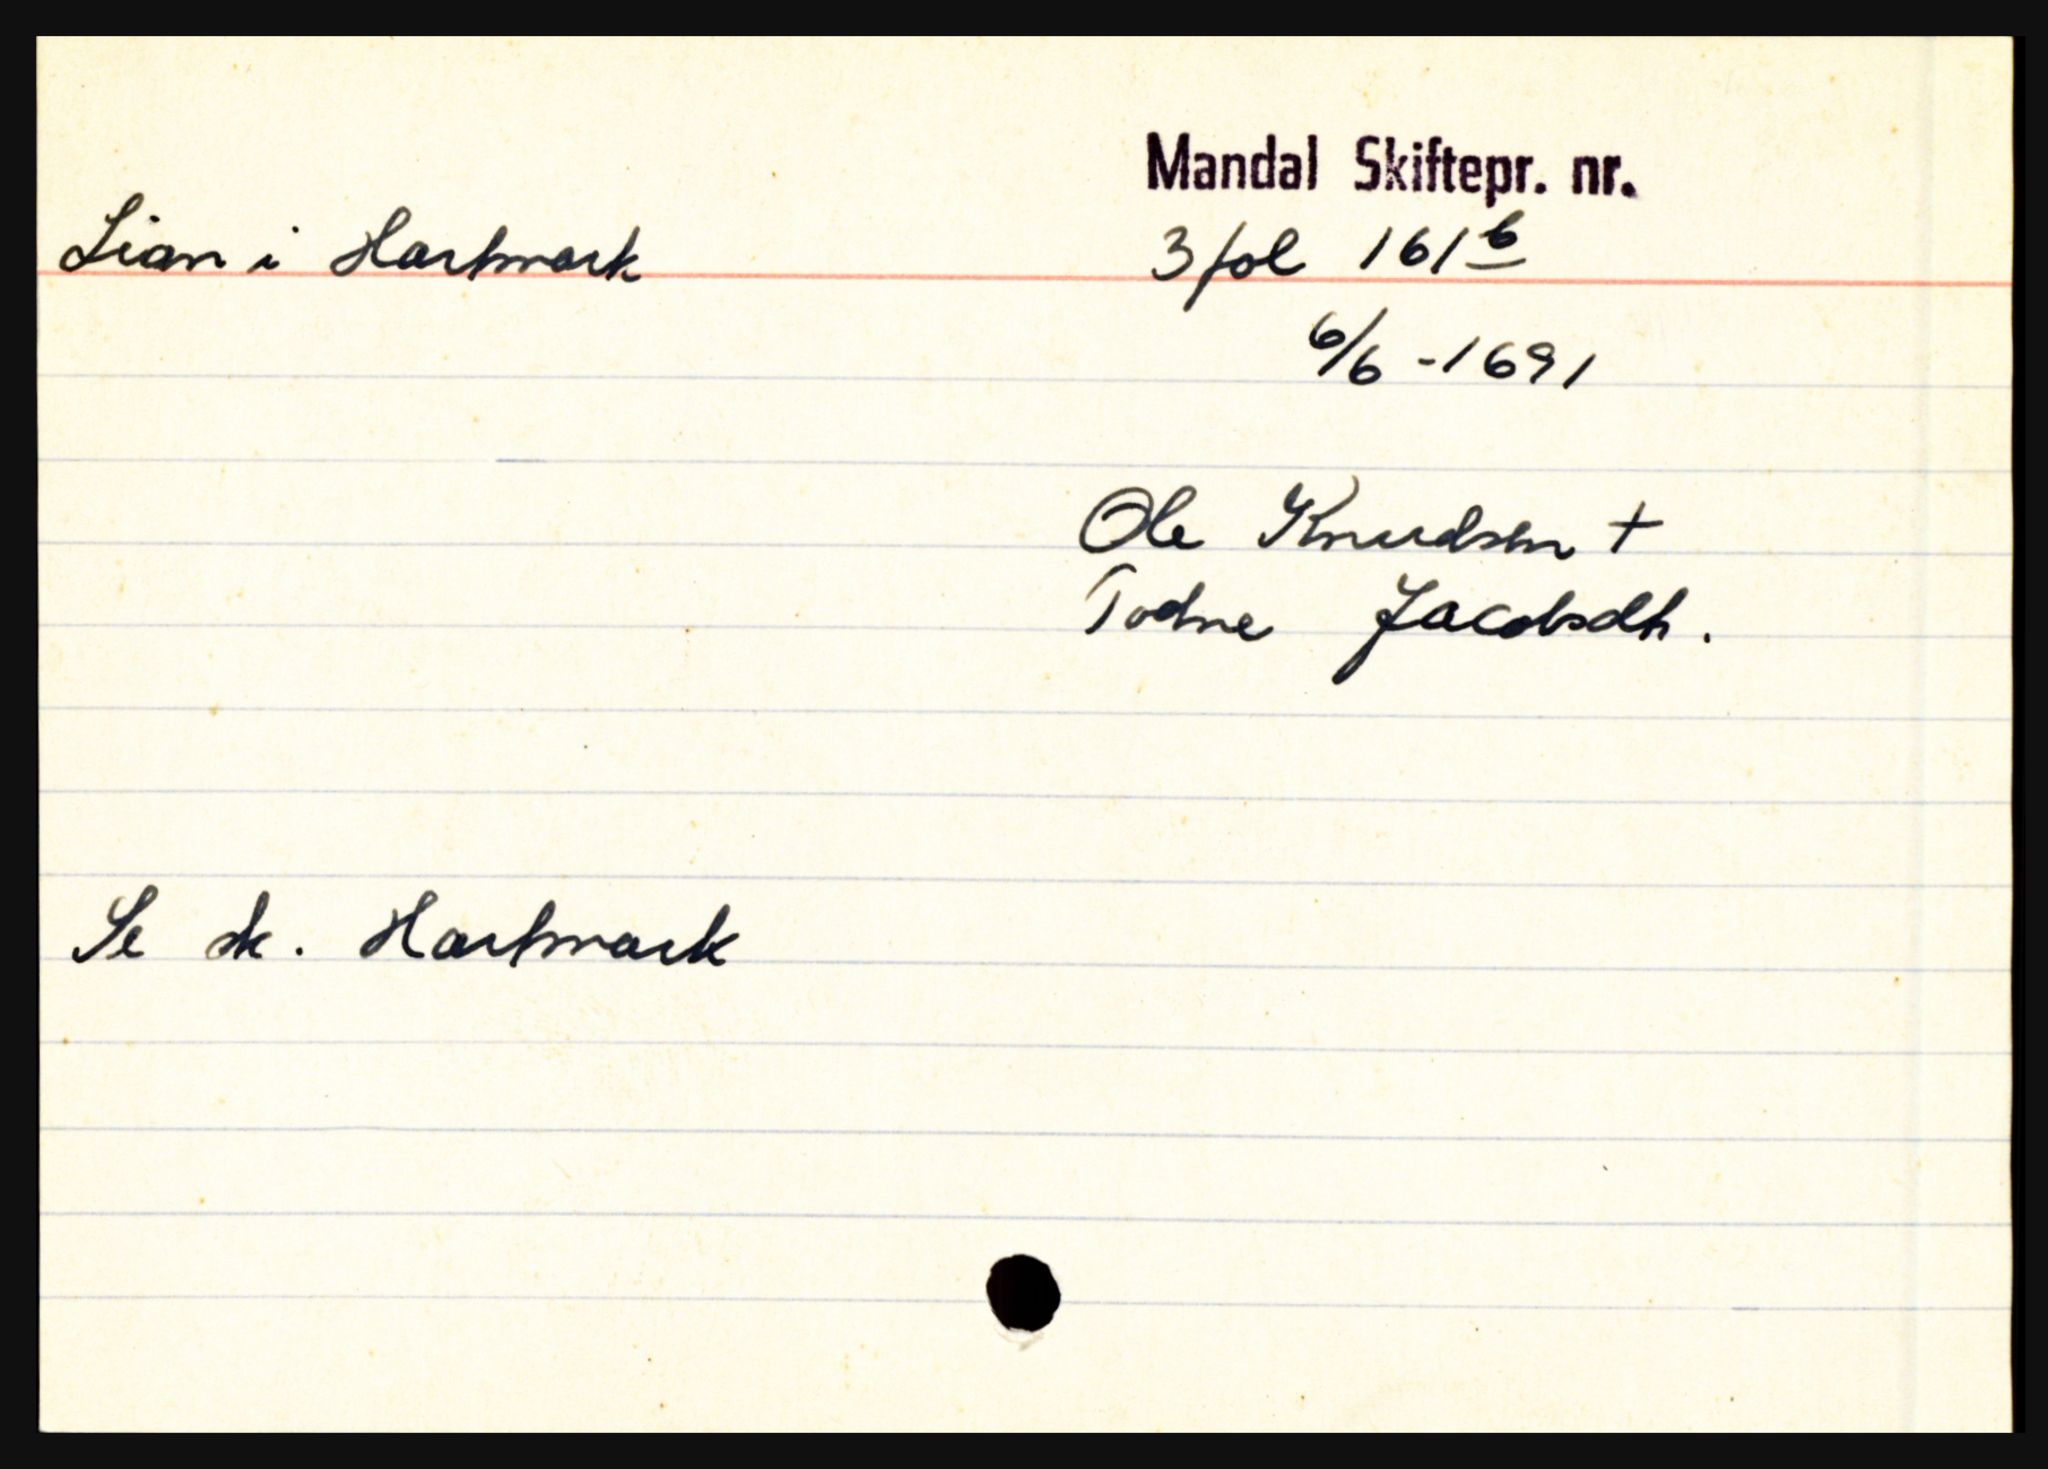 Mandal Skiftepr. nr.
Lian i Hartmark 3 fol 161 b
6/6 - 1691
Ole Knudsen +
Todne Jacobsdtr.
Se sk. Hartmark